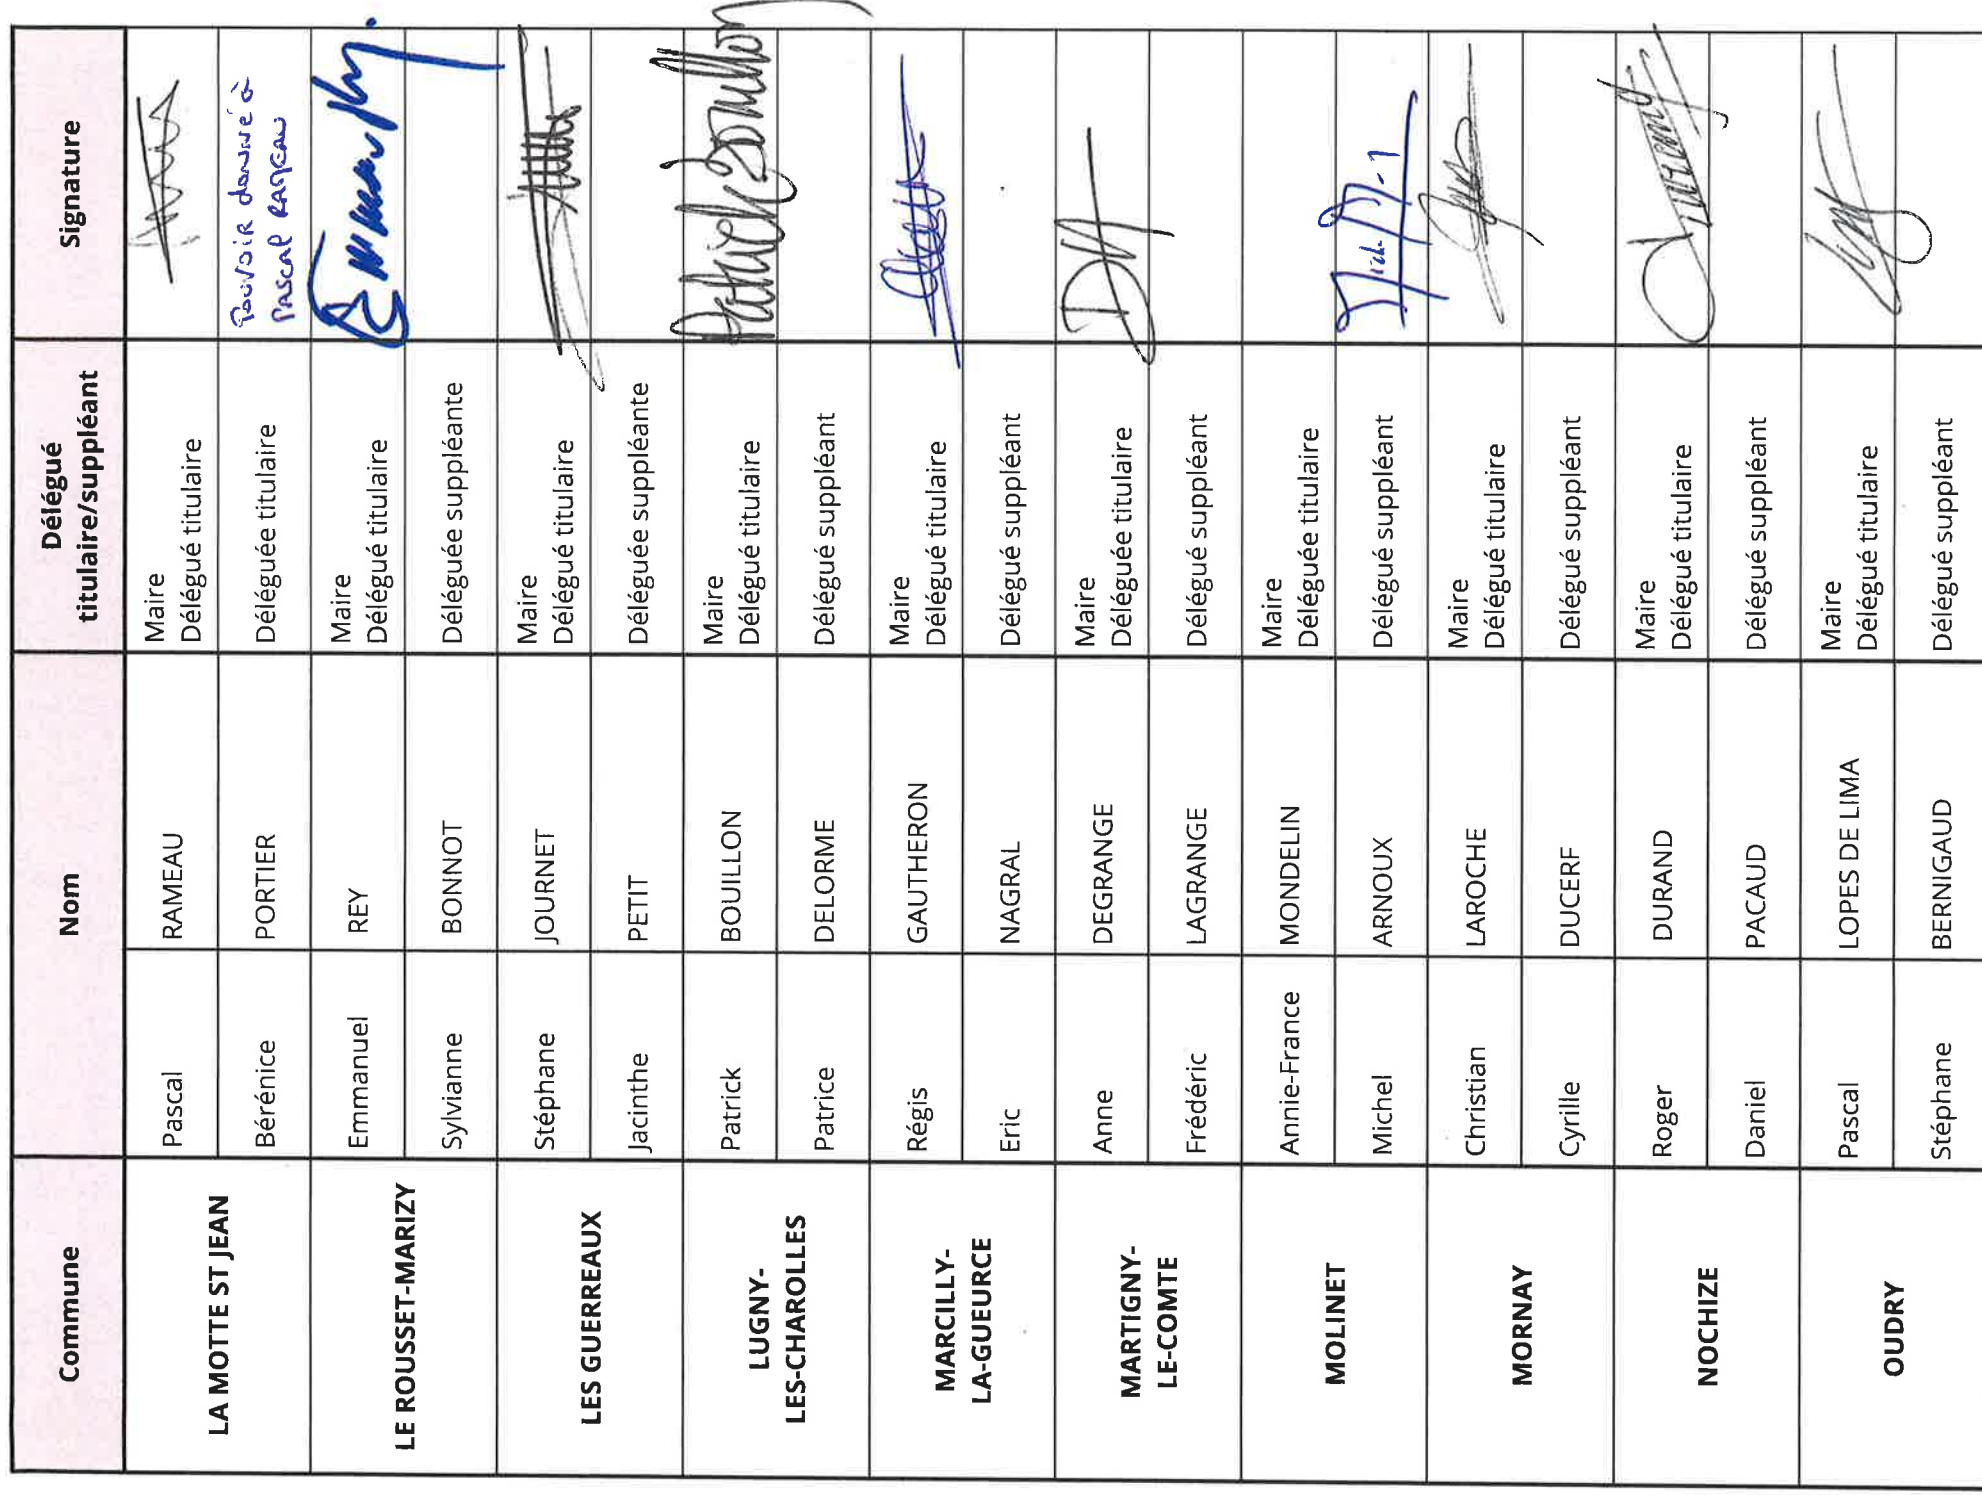 Commune Nom Délégué
titulaire/suppléant Signature
LA MOTTE ST JEAN
Pascal RAMEAU Maire
Délégué titulaire
Bérénice PORTIER Déléguée titulaire Pouvoir donné à
Pascal RAMEAU
LE ROUSSET-MARIZY
Emmanuel REY Maire
Délégué titulaire Emmanuel Rey
Sylvianne BONNOT Déléguée suppléante
LES GUERREAUX
Stéphane JOURNET Maire
Délégué titulaire
Jacinthe PETIT Déléguée suppléante
LUGNY-
LES-CHAROLLES
Patrick BOUILLON Maire
Délégué titulaire Patrick Bouillon
Patrice DELORME Délégué suppléant
MARCILLY-
LA-GUEURCE
Régis GAUTHERON Maire
Délégué titulaire
Eric NAGRAL Délégué suppléant
MARTIGNY-
LE-COMTE
Anne DEGRANGE Maire
Déléguée titulaire
Frédéric LAGRANGE Délégué suppléant
MOLINET
Annie-France MONDELIN Maire
Déléguée titulaire
Michel ARNOUX Délégué suppléant
MORNAY
Christian LAROCHE Maire
Délégué titulaire
Cyrille DUCERF Délégué suppléant
NOCHIZE
Roger DURAND Maire
Délégué titulaire
Daniel PACAUD Délégué suppléant
OUDRY
Pascal LOPES DE LIMA Maire
Délégué titulaire
Stéphane BERNIGAUD Délégué suppléant